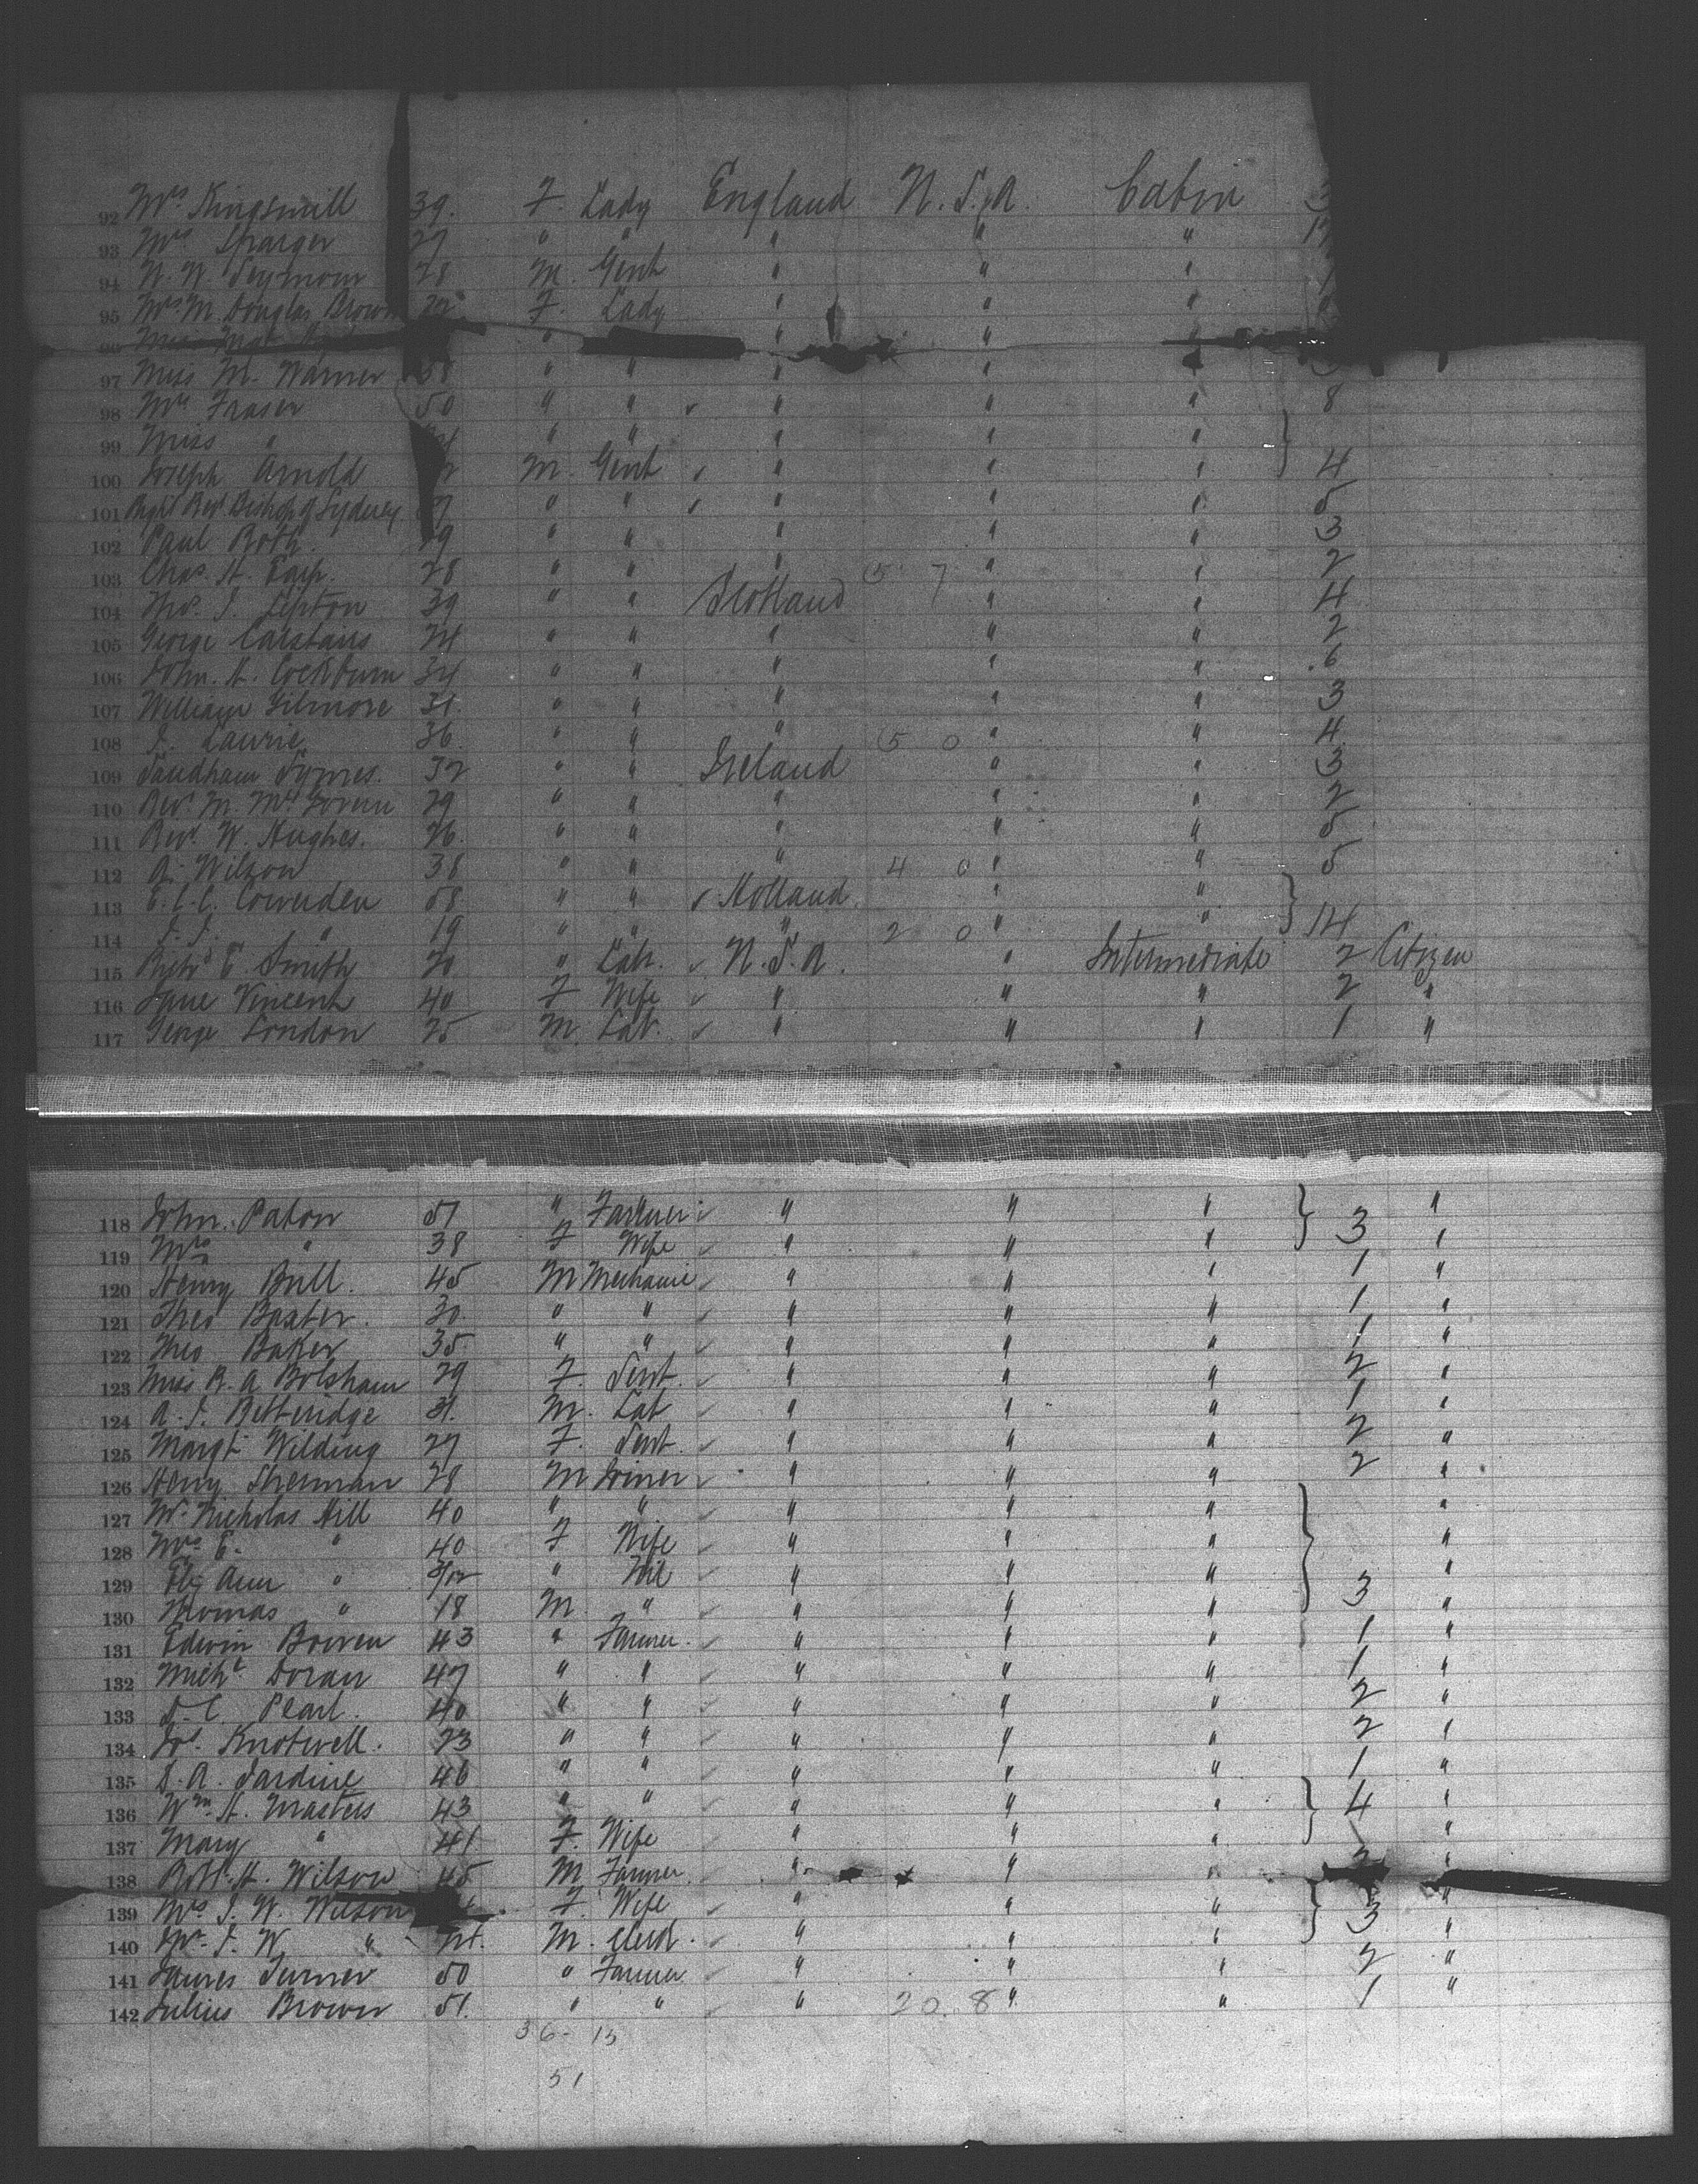 92 Mrs Kingsmill 39. F. Lady England U.S.A. Cabin
93 Mrs 27 " " " " "
94 W. W. Seymour 28 M. Gent " " "
95 Mrs M. Douglas Brown F. Lady " " "
96 Miss " " "
97 Miss M. Warner " " " " "
98 Mrs Fraser 50 " " " " " 8
99 Miss " " " " " "
100 Joseph Arnold M. Gent " " " 4
101 Right Revd Bishop of Sydney " " " " " 5
102 Paul Roth. 29 " " " " " 3
103 Chas. H. 28 " " " 5 7 " " 2
104 T. Lipton 39 " " Scotland " " 4
105 George Carstairs 24 " " " " " 2
106 John. A. Cockburn 34 " " " " " 6
107 William Gilmore 31. " " " " " 3
108 J. Laurie 36. " " " 5 0 " " 4
109 Sandham Symes. 32 " " Ireland " " 3
110 Revd. M. McGovern 29 " " " " " 2
111 Revd W. Hughes. 26. " " " " " 5
112 A. Wilson 38 " " " 4 0 " " 5
113 E. C. C. 58 " " Holland. " "
114 J. J. " 19 " " " 2 0 " " 14
115 Richd E. Smith 20 " Lab. U.S.A. " Intermediate 2 Citizen
116 Jane Vincent 40 F Wife " " " 2 "
117 George London 25 M. Lab. " " " 1 "
118 John. Paton 51 " Farmer " " " 3 "
119 Mrs " 38 F Wife " " " "
120 Henry Bull. 45 M Mechanic " " " 1 "
121 Theo Baxter. 30. " " " " " 1 "
122 Theo Baker 35. " " " " " 1 "
123 Miss R. A. Bolsham 29 F. Servt. " " " 2 "
124 A. J. Betteridge 31. M. Lab " " " 1 "
125 Margt Wilding 27 F. Servt. " " " 2 "
126 Henry Sherman 28 M Joiner " " " 2 "
127 Mr. Nicholas Hill 40 " " " " " "
128 Mrs. E. " 40 F Wife " " " "
129 Elz Ann " " Nil " " " "
130 Thomas " 18 M. " " " " 3 "
131 Edwin Bowen 43 " Farmer. " " " 1 "
132 Michl Doran 47 " " " " " 1 "
133 Pearl. 40 " " " " " 2 "
134 Jos. Knotwell. 23 " " " " " 2 "
135 D. A. Jardine 46 " " " " " 1 "
136 Wm. H. Masters 43 " " " " " 4 "
137 Mary " 41 F. Wife " " " "
138 Robt. H. Wilson 45 M Farmer. " " " "
139 Mrs J. W. Wilson F. Wife " " " 3 "
140 Mr. J. W. " M. Clerk. " " " "
141 James Turner 50 " Farmer " " " 2 "
142 Julius Brown 51. " " " 20. 8 " " 1 "
36- 15
51